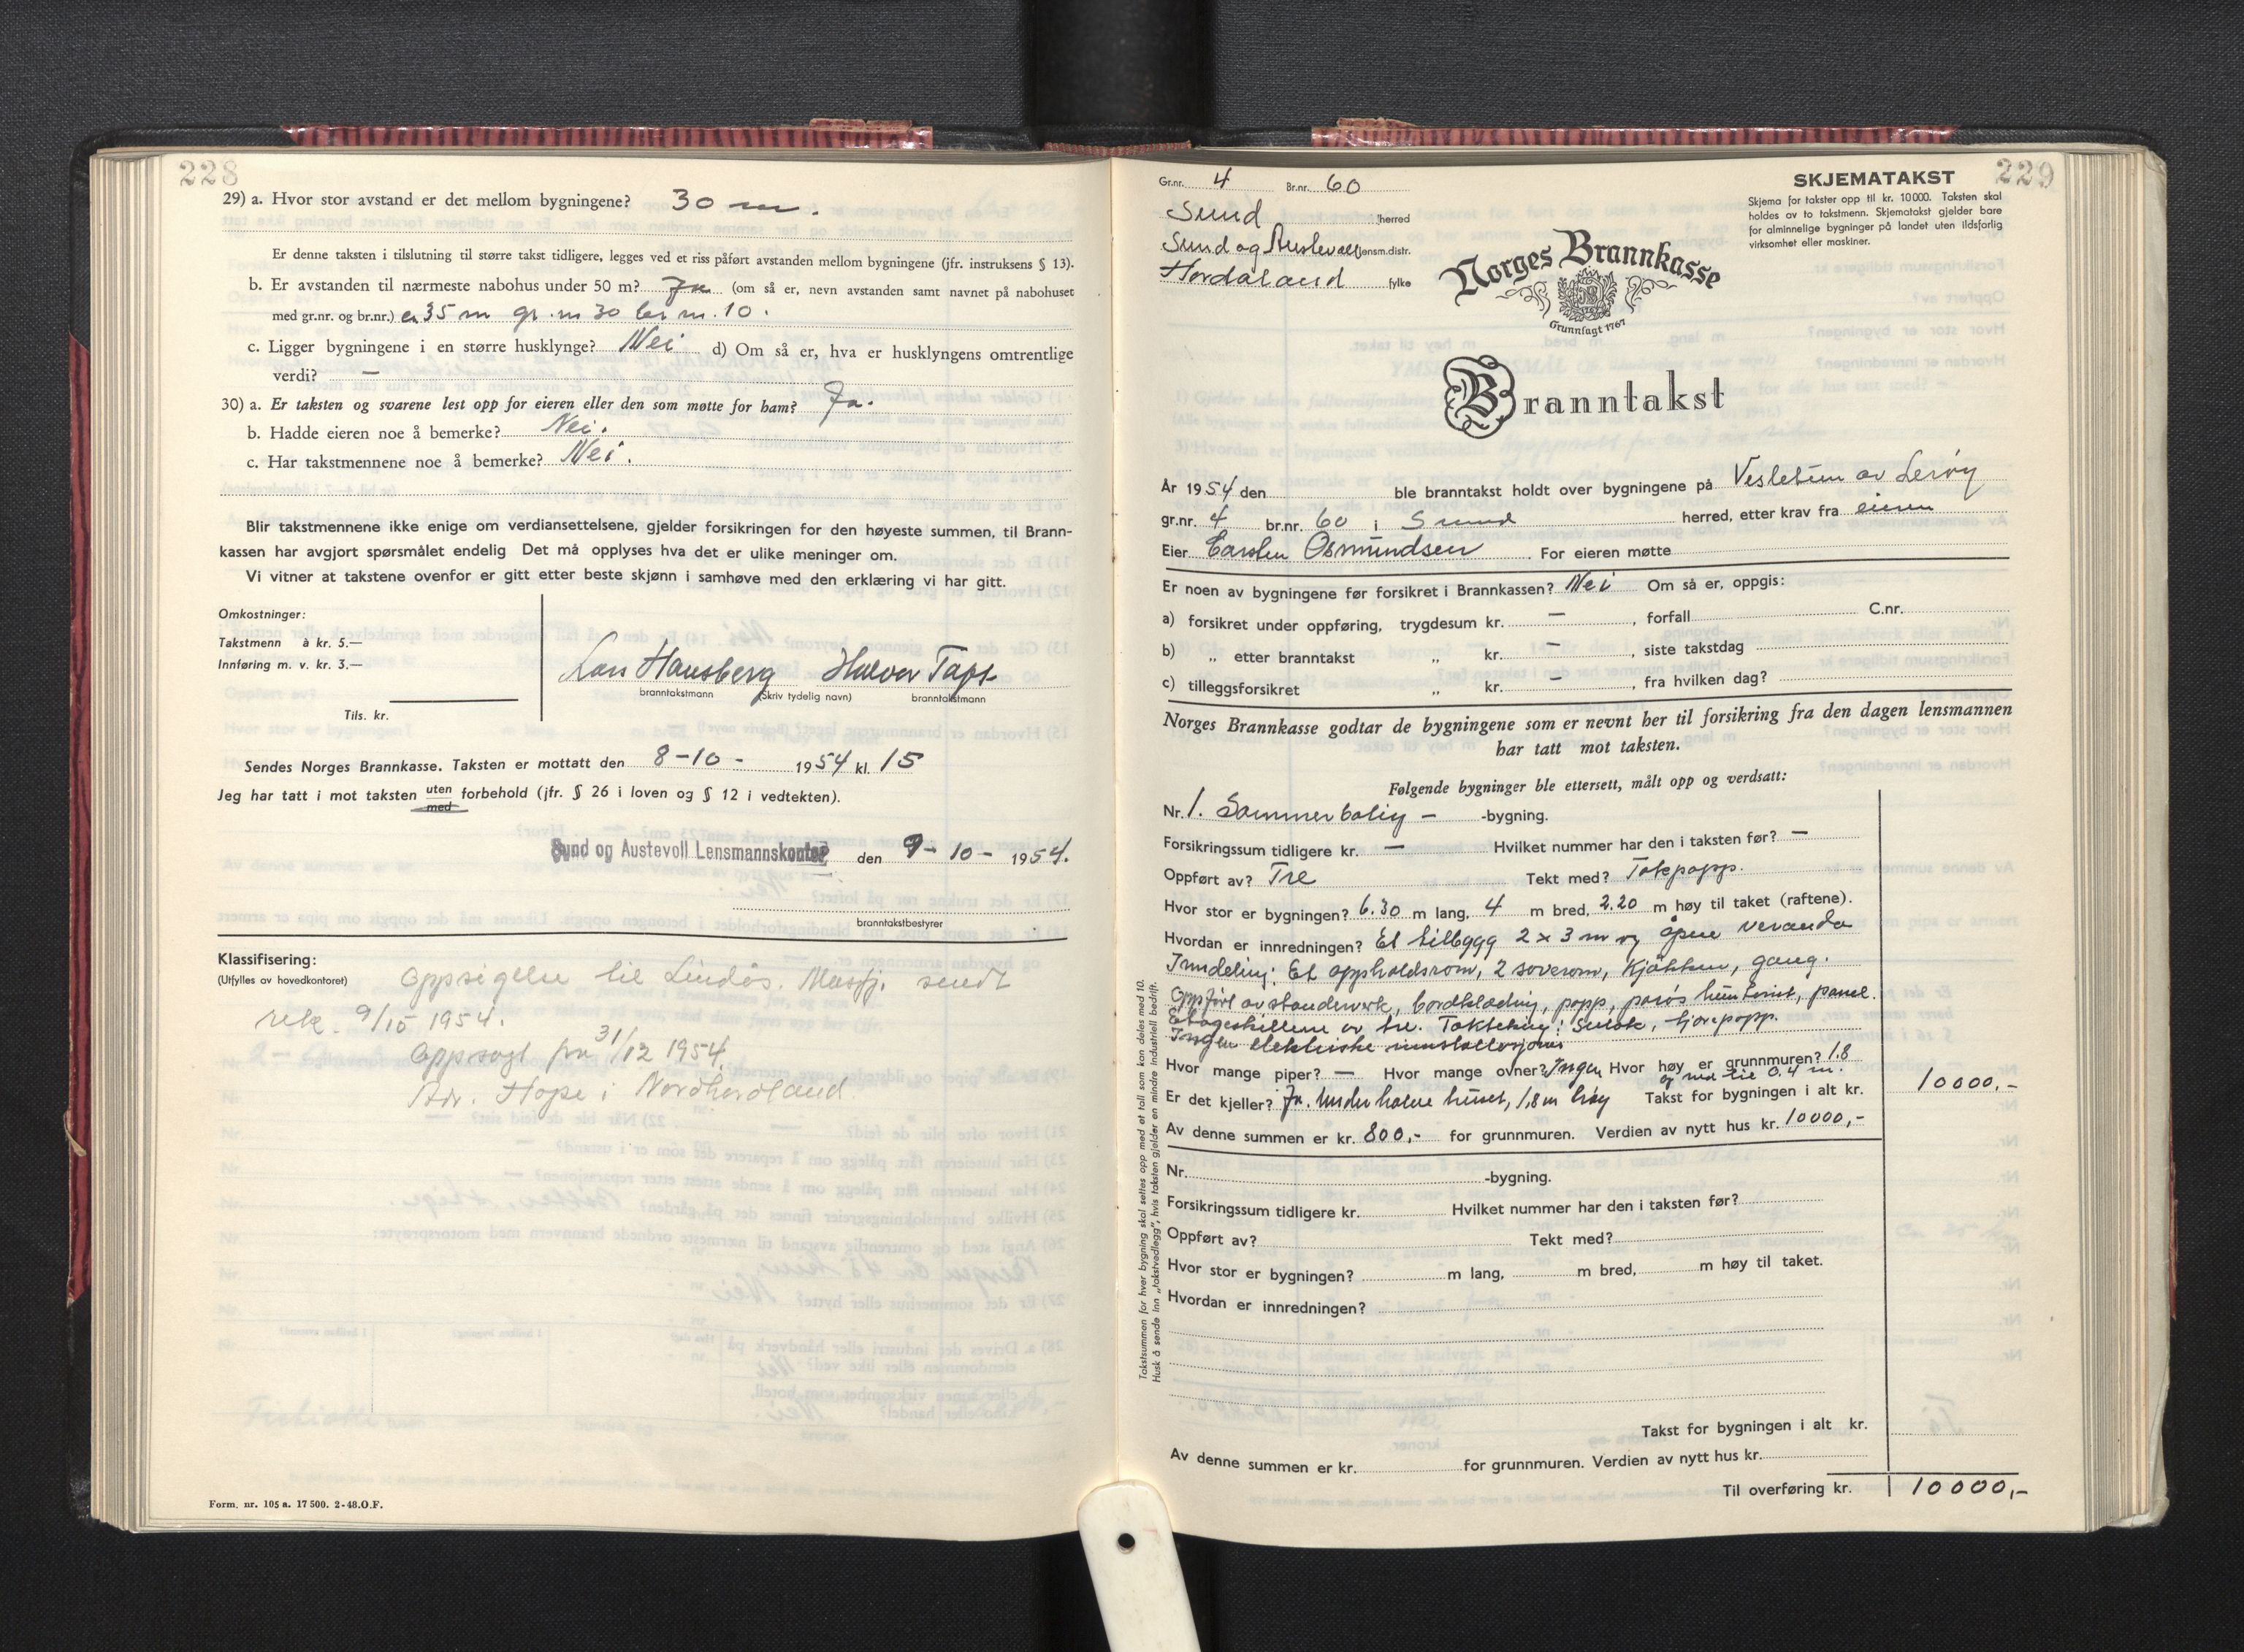 228
29) a. Hvor stor avstand er det mellom bygningene? 30 m.
Er denne taksten i tilslutning til større takst tidligere, legges ved et riss påført avstanden mellom bygningene (jfr. instruksens § 13).
b. Er avstanden til nærmeste nabohus under 50 m? Ja (om så er, nevn avstanden samt navnet på nabohuset
med gr.nr. og br.nr.) ca 35 m gr. nr 30 br nr. 10.
c. Ligger bygningene i en større husklynge? Nei d) Om så er, hva er husklyngens omtrentlige
verdi? —
30) a. Er taksten og svarene lest opp for eieren eller den som møtte for ham? Ja.
b. Hadde eieren noe å bemerke? Nei.
c. Har takstmennene noe å bemerke? Nei.
Blir takstmennene ikke enige om verdiansettelsene, gjelder forsikringen for den høyeste summen, til Brann-
kassen har avgjort spørsmålet endelig Det må opplyses hva det er ulike meninger om.
Vi vitner at takstene ovenfor er gitt etter beste skjønn i samhøve med den erklæring vi har gitt.
Omkostninger:
Takstmenn à kr. 5.—
Innføring m. v. kr. 3.—
Tils. kr.
Lars Hansberg Halvor Taps
branntakstmann (Skriv tydelig navn) branntakstmann
Sendes Norges Brannkasse. Taksten er mottatt den 8-10- 1954 kl. 15
Jeg har tatt i mot taksten uten med forbehold (jfr. § 26 i loven og § 12 i vedtekten).
Sund og Austevoll Lensmannskontor den 9-10-1954.
branntakstbestyrer
Klassifisering:
(Utfylles av hovedkontoret)
Oppsigelse til Lindås. Masfj. sendt
rek. 9/10 1954.
Oppsagt fra 31/12 1954.
Adr. Hope i Nordhordland
Form. nr. 105 a. 17 500. 2-48.O.F.
229
Gr.nr. 4 Br.nr. 60
Sund herred
Sund og Austevoll lensm.distr.
Hordaland fylke
SKJEMATAKST
Skjema for takster opp til kr. 10 000. Taksten skal
holdes av to takstmenn. Skjematakst gjelder bare
for alminnelige bygninger på landet uten ildsfarlig
virksomhet eller maskiner.
Norges Brannkasse
Grunnlagt 1767
Branntakst
År 1954 den ble branntakst holdt over bygningene på Vesletun av Lerøy
gr.nr. 4 br.nr. 60 i Sund herred, etter krav fra eieren
Eier Carsten Osmundsen For eieren møtte
Er noen av bygningene før forsikret i Brannkassen? Nei Om så er, oppgis:
a) forsikret under oppføring, trygdesum kr. — , forfall C.nr.
b) „ etter branntakst „ kr. — , siste takstdag
c) tilleggsforsikret „ kr. — , fra hvilken dag?
Norges Brannkasse godtar de bygningene som er nevnt her til forsikring fra den dagen lensmannen
har tatt mot taksten.
Følgende bygninger ble ettersett, målt opp og verdsatt:
Nr. 1. Sommerbolig — -bygning.
Forsikringssum tidligere kr. — Hvilket nummer har den i taksten før? —
Oppført av? Tre Tekt med? Takpapp.
Hvor stor er bygningen? 6.30 m lang, 4 m bred, 2.20 m høy til taket (raftene).
Hvordan er innredningen? Et tilbygg 2 x 3 m og åpen veranda
Inndeling: Et oppholdsrom, 2 soverom, kjøkken, gang.
Oppført av standerverk, bordklædning, papp, porøs huntonit, panel.
Etageskillene av tre. Taktekking: sutak, tjærepapp.
Ingen elektriske innstallasjoner
Hvor mange piper? — Hvor mange ovner? Ingen Hvor høy er grunnmuren? 1.8
og ned til 0.4 m.
Er det kjeller? Ja. Under halve huset, 1,8 m høy Takst for bygningen i alt kr. 10000,-
Av denne summen er kr. 800,- for grunnmuren. Verdien av nytt hus kr. 10000,-
Nr. -bygning.
Forsikringssum tidligere kr. Hvilket nummer har den i taksten før?
Oppført av? Tekt med?
Hvor stor er bygningen? m lang, m bred, m høy til taket.
Hvordan er innredningen?
Takst for bygningen i alt kr.
Av denne summen er kr. for grunnmuren. Verdien av nytt hus kr.
Til overføring kr. 10000,-
Takstsummen for hver bygning skal settes opp med et tall som kan deles med 10.
Husk å sende inn „takstvedlegg", hvis taksten gjelder en mindre industriell bedrift.